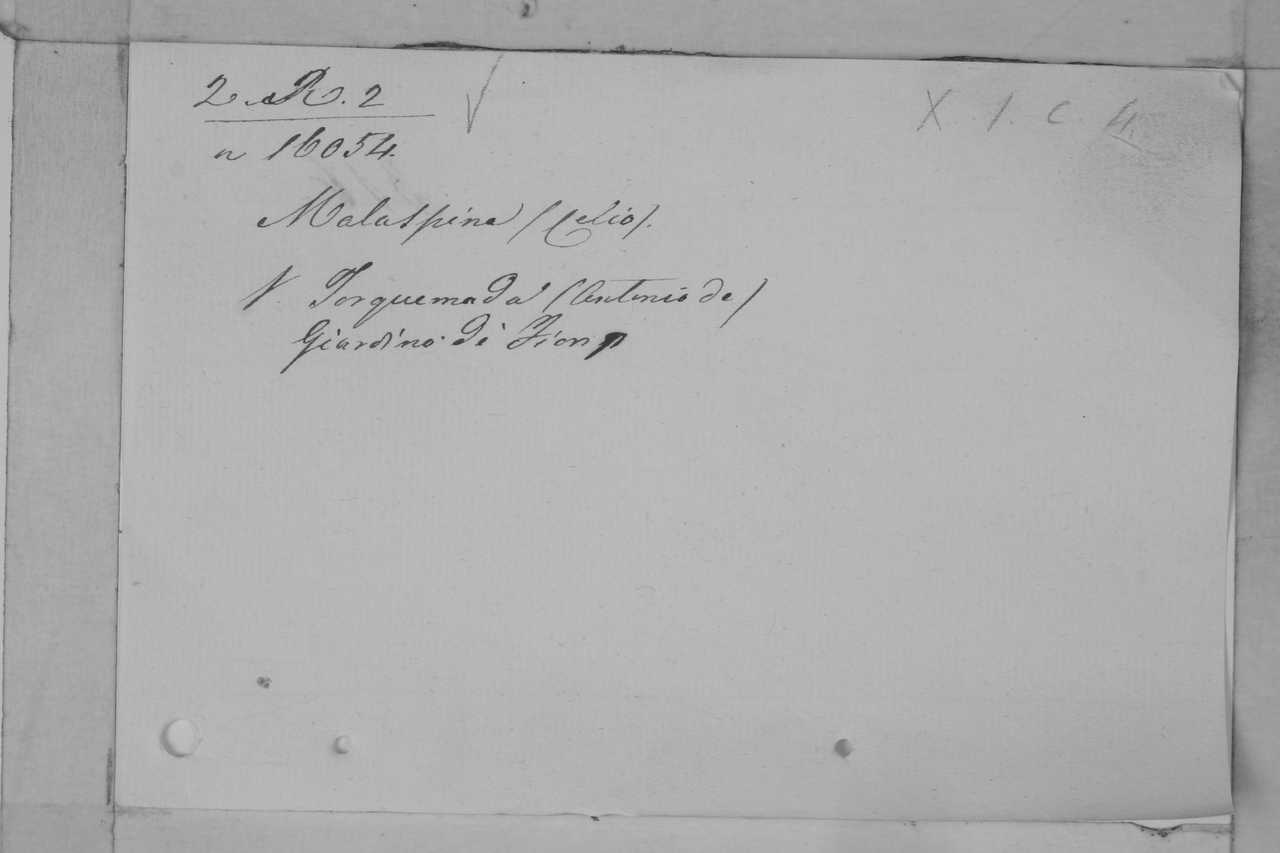 2. R. 2
X. 1. C. 4.
n 16054.
Malaspina (Celio).
V. Torquemada (Antonio de)
Giardino di Fiori